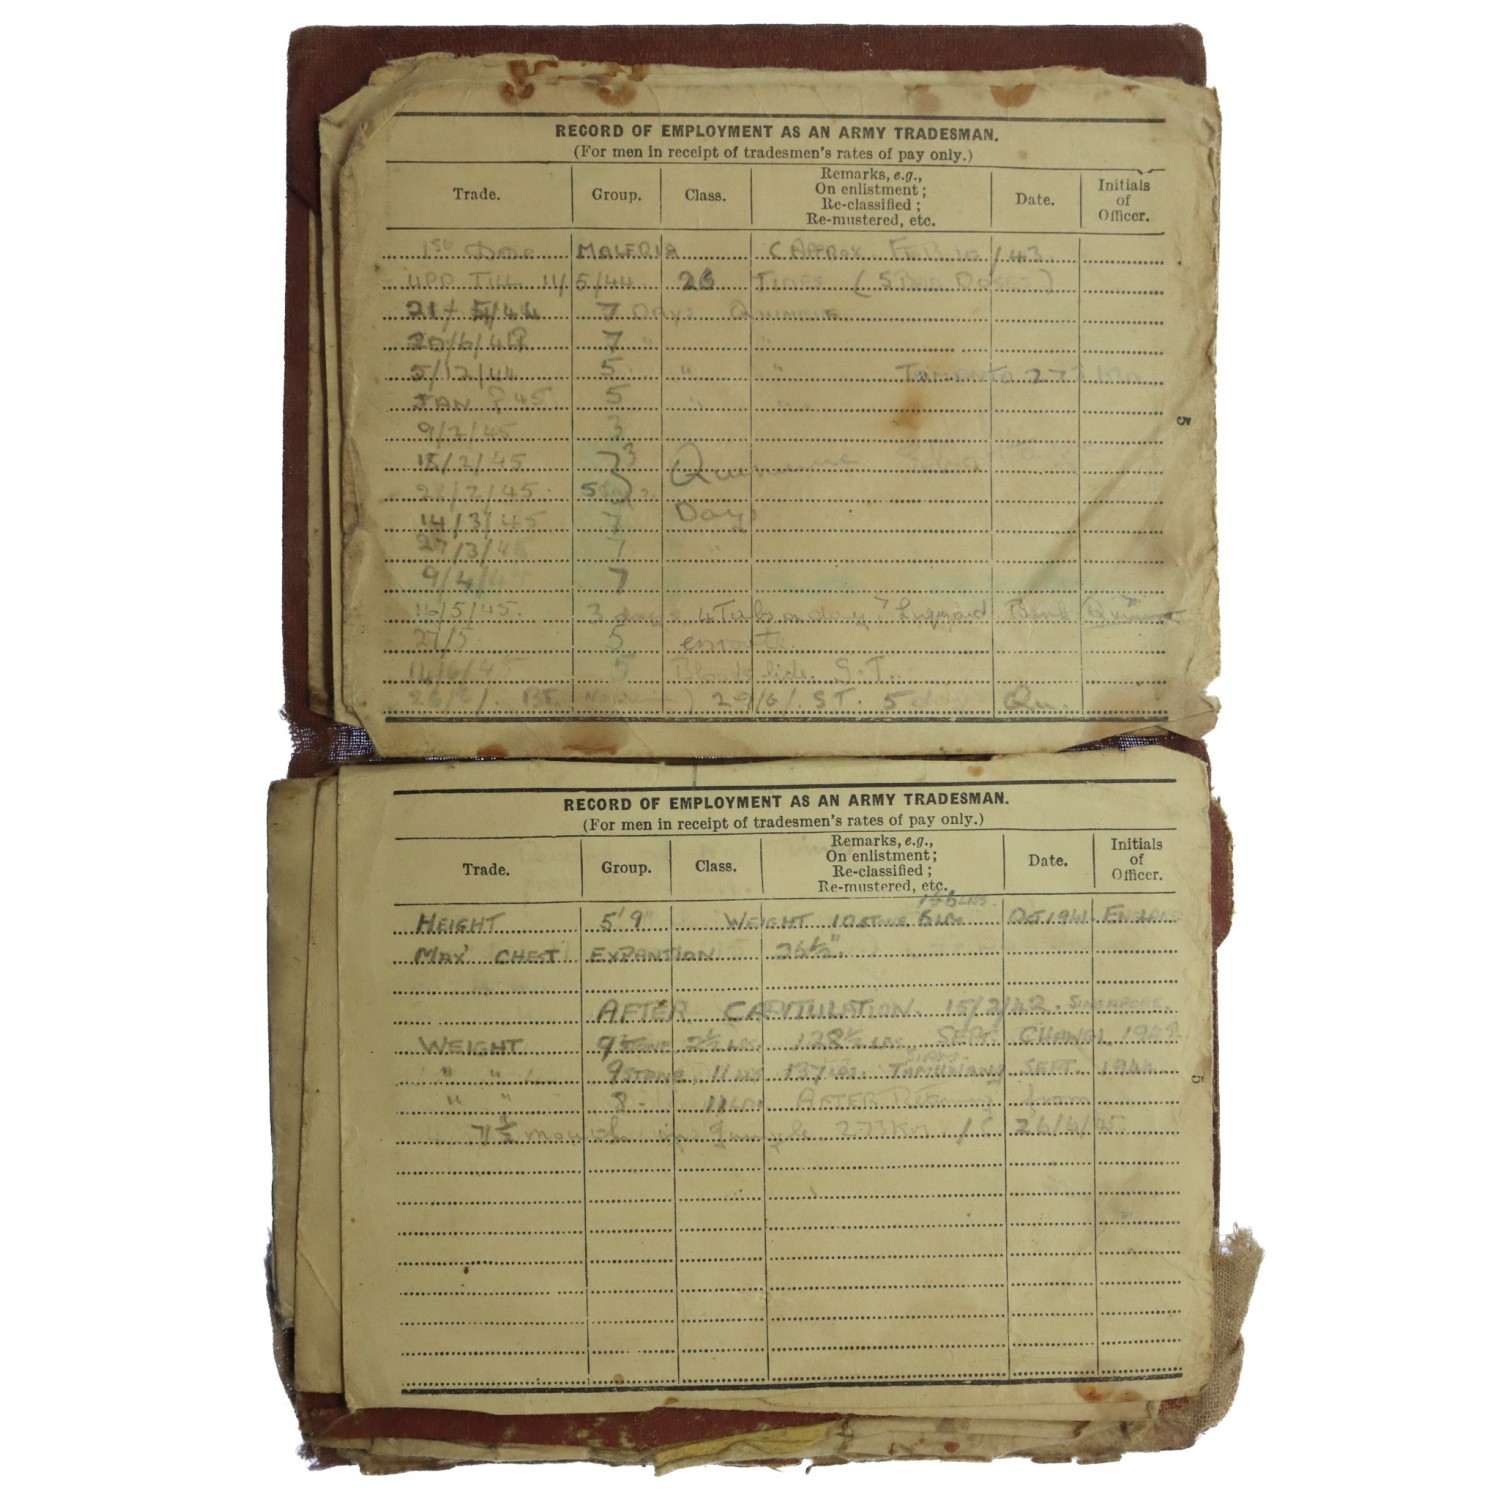 RECORD OF EMPLOYMENT AS AN ARMY TRADESMAN.
(For men in receipt of tradesmen's rates of pay only.)
Trade. Group. Class. Remarks, e.g., On enlistment; Re-classified; Re-mustered, etc. Date. Initials of Officer.
1st Dose MALERIA (APPROX FEB 10/43
UPP TILL 11/5/44 26 TIMES (5 BAD DOSES)
21/5/44 7 Days Quinnine
20/6/44 7 " "
5/12/44 5 " " 273 Km
JAN 45 5 "
9/2/45 3
18/2/45 3 Quinnine
28/2/45. 5
14/3/45 7 Days
27/3/45 7 "
9/4/45 7
16/5/45. 3 days 4 Tubs a day Liquid
27/5 5 enroute.
14/6/45 5 Blood slide. S.T.
26/6/. 29/6/. S.T. 5 days Qu.
5
RECORD OF EMPLOYMENT AS AN ARMY TRADESMAN.
(For men in receipt of tradesmen's rates of pay only.)
Trade. Group. Class. Remarks, e.g., On enlistment; Re-classified; Re-mustered, etc. Date. Initials of Officer.
HEIGHT 5'9" WEIGHT 10 STONE 6 LBS OCT 1941 ENGLAND
MAX' CHEST EXPANTION 36½".
AFTER CAPITULATION. 15/2/42. SINGAPORE.
WEIGHT 9 STONE 2½ LBS. 128½ LBS. SEPT. CHANGI.
" " 9 STONE, 11 LBS 137 LBS. SIAM. SEPT. 1944
" " 8 - 11 LBS AFTER Returning from
7½ month in Jungle 273 KM. 26/6/45
5